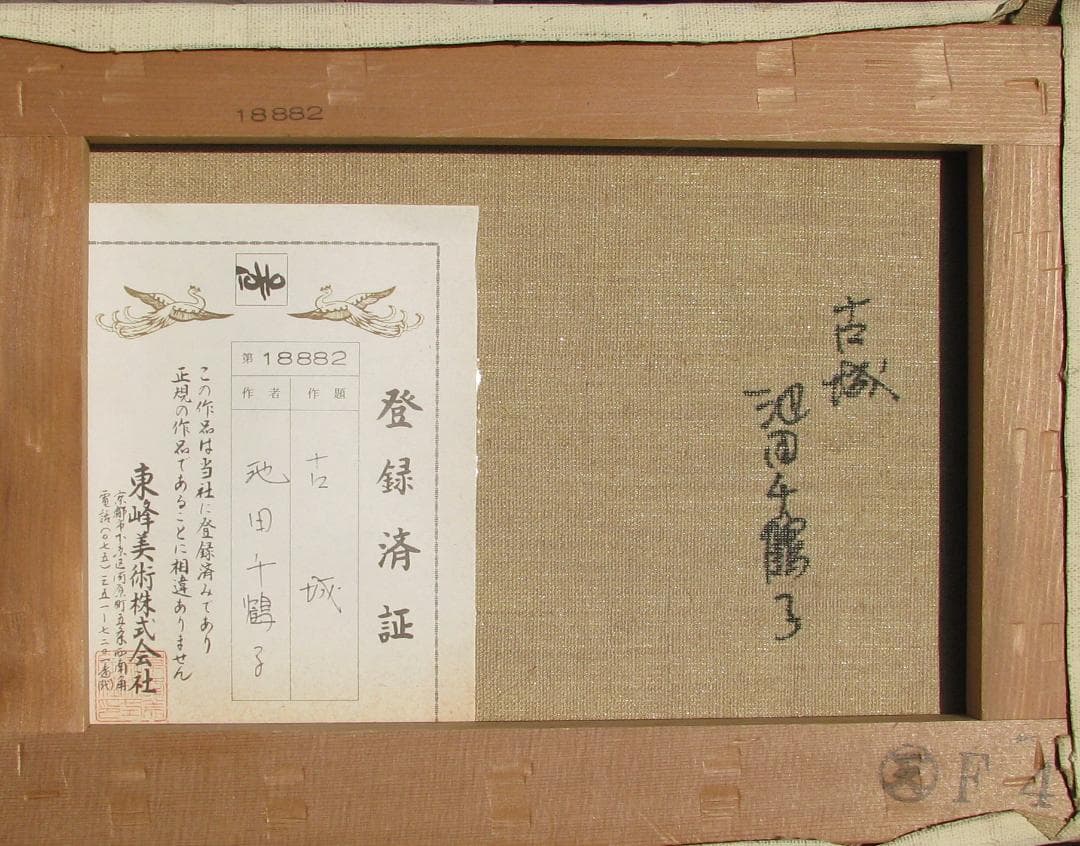 18882
古城
池田千鶴子
TOHO
登録済証
第 18882
作題
作者
古城
池田千鶴子
この作品は当社に登録済みであり
正規の作品であることに相違ありません
東峰美術株式会社
京都市下京区河原町五条西南角
F 4